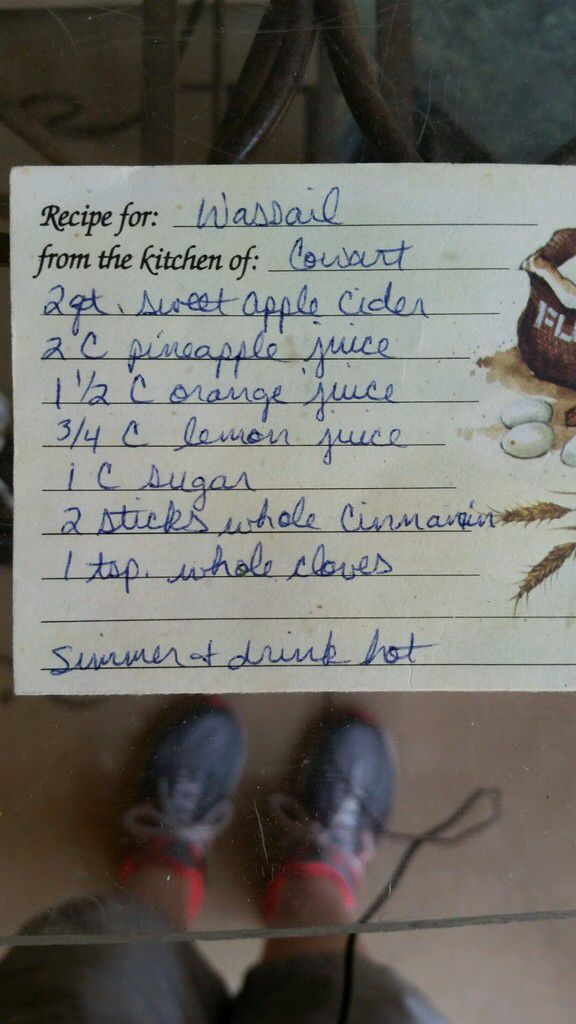 Recipe for: Wassail
from the kitchen of: Cowart
2 qt. sweet apple cider
2 C pineapple juice
1 1/2 C orange juice
3/4 C lemon juice
1 C sugar
2 sticks whole Cinnamin
1 tsp. whole cloves
Simmer & drink hot
FL